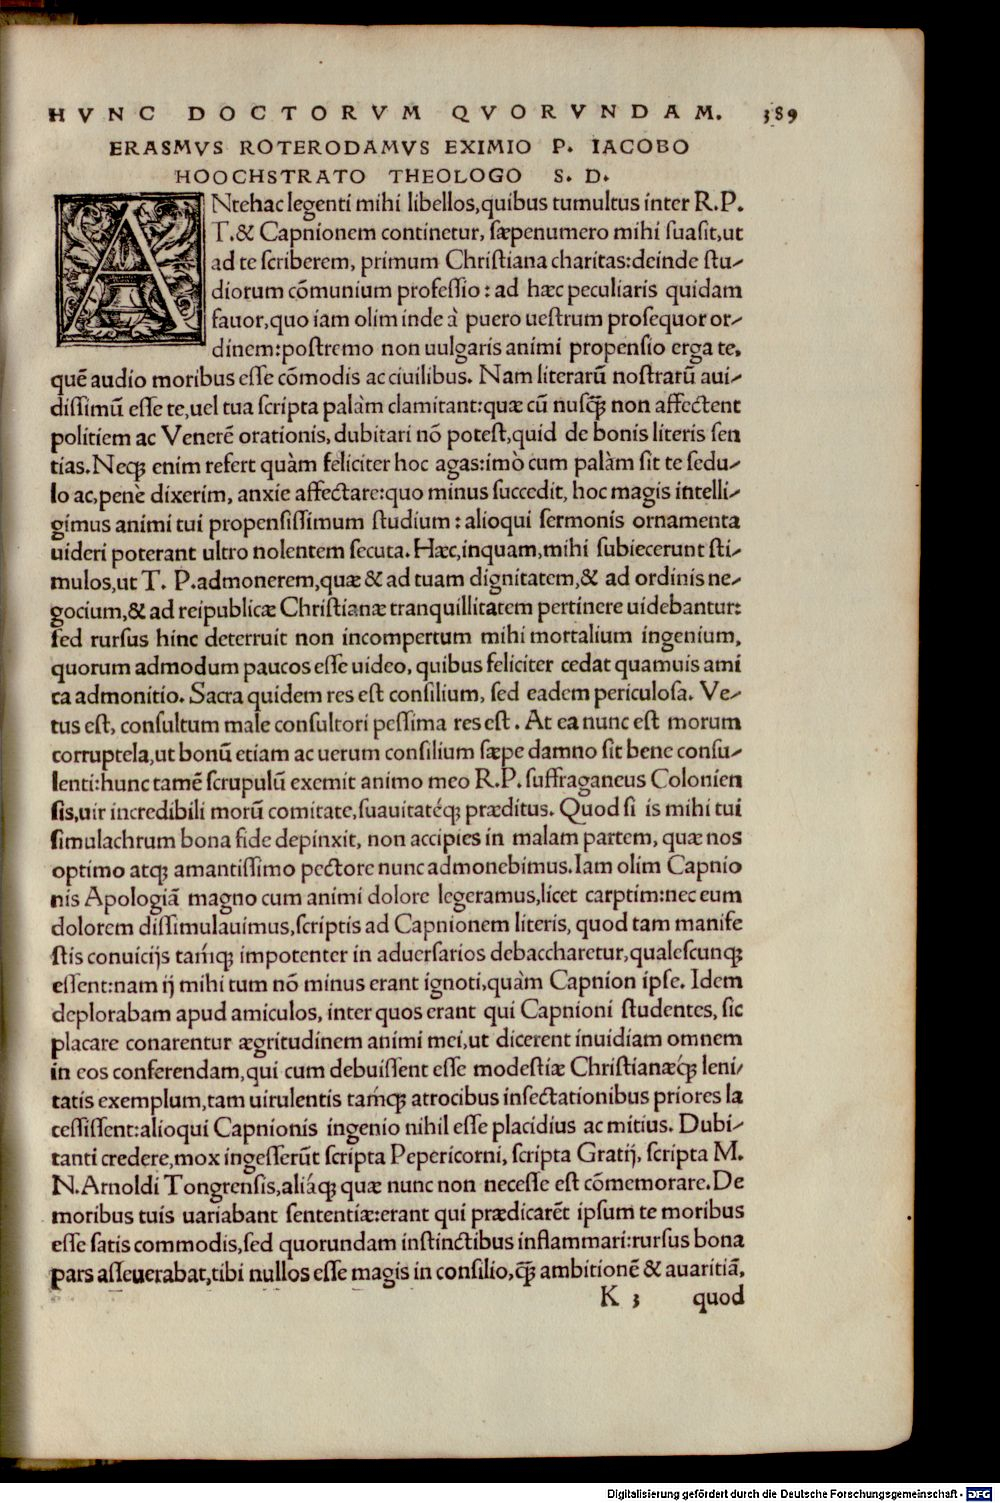 HVNC DOCTORVM QVORVNDAM. 389
ERASMVS ROTERODAMVS EXIMIO P. IACOBO
HOOCHSTRATO THEOLOGO S. D.
ANtehac legenti mihi libellos,quibus tumultus inter R.P.
T.& Capnionem continetur, sæpenumero mihi suasit,ut
ad te scriberem, primum Christiana charitas:deinde stu-
diorum cōmunium professio: ad hæc peculiaris quidam
fauor,quo iam olim inde à puero uestrum prosequor or-
dinem:postremo non uulgaris animi propensio erga te,
quē audio moribus esse cōmodis ac ciuilibus. Nam literarū nostrarū aui-
dissimū esse te,uel tua scripta palàm clamitant:quæ cū nusq̃ non affectent
politiem ac Venerē orationis, dubitari nō potest,quid de bonis literis sen
tias.Neqꝫ enim refert quàm feliciter hoc agas:imò cum palàm sit te sedu-
lo ac,penè dixerim, anxie affectare:quo minus succedit, hoc magis intelli-
gimus animi tui propensissimum studium: alioqui sermonis ornamenta
uideri poterant ultro nolentem secuta. Hæc,inquam,mihi subiecerunt sti-
mulos,ut T. P.admonerem,quæ & ad tuam dignitatem,& ad ordinis ne-
gocium,& ad reipublicæ Christianæ tranquillitatem pertinere uidebantur:
sed rursus hinc deterruit non incompertum mihi mortalium ingenium,
quorum admodum paucos esse uideo, quibus feliciter cedat quamuis ami
ca admonitio. Sacra quidem res est consilium, sed eadem periculosa. Ve-
tus est, consultum male consultori pessima res est. At ea nunc est morum
corruptela,ut bonū etiam ac uerum consilium sæpe damno sit bene consu-
lenti:hunc tamē scrupulū exemit animo meo R.P. suffraganeus Colonien
sis,uir incredibili morū comitate,suauitatéqꝫ præditus. Quod si is mihi tui
simulachrum bona fide depinxit, non accipies in malam partem, quæ nos
optimo atqꝫ amantissimo pectore nunc admonebimus.Iam olim Capnio
nis Apologiā magno cum animi dolore legeramus,licet carptim:nec eum
dolorem dissimulauimus,scriptis ad Capnionem literis, quod tam manife
stis conuicijs tamq́ꝫ impotenter in aduersarios debaccharetur,qualescunqꝫ
essent:nam ij mihi tum nō minus erant ignoti,quàm Capnion ipse. Idem
deplorabam apud amiculos, inter quos erant qui Capnioni studentes, sic
placare conarentur ægritudinem animi mei,ut dicerent inuidiam omnem
in eos conferendam,qui cum debuissent esse modestiæ Christianæq́ꝫ leni-
tatis exemplum,tam uirulentis tamq́ꝫ atrocibus insectationibus priores la
cessissent:alioqui Capnionis ingenio nihil esse placidius ac mitius. Dubi-
tanti credere,mox ingesserūt scripta Pepericorni, scripta Gratij, scripta M.
N.Arnoldi Tongrensis,aliáqꝫ quæ nunc non necesse est cōmemorare.De
moribus tuis uariabant sententiæ:erant qui prædicarēt ipsum te moribus
esse satis commodis,sed quorundam instinctibus inflammari:rursus bona
pars asseuerabat,tibi nullos esse magis in consilio,q̃ ambitionē & auaritiā,
K 3 quod
Digitalisierung gefördert durch die Deutsche Forschungsgemeinschaft - DFG